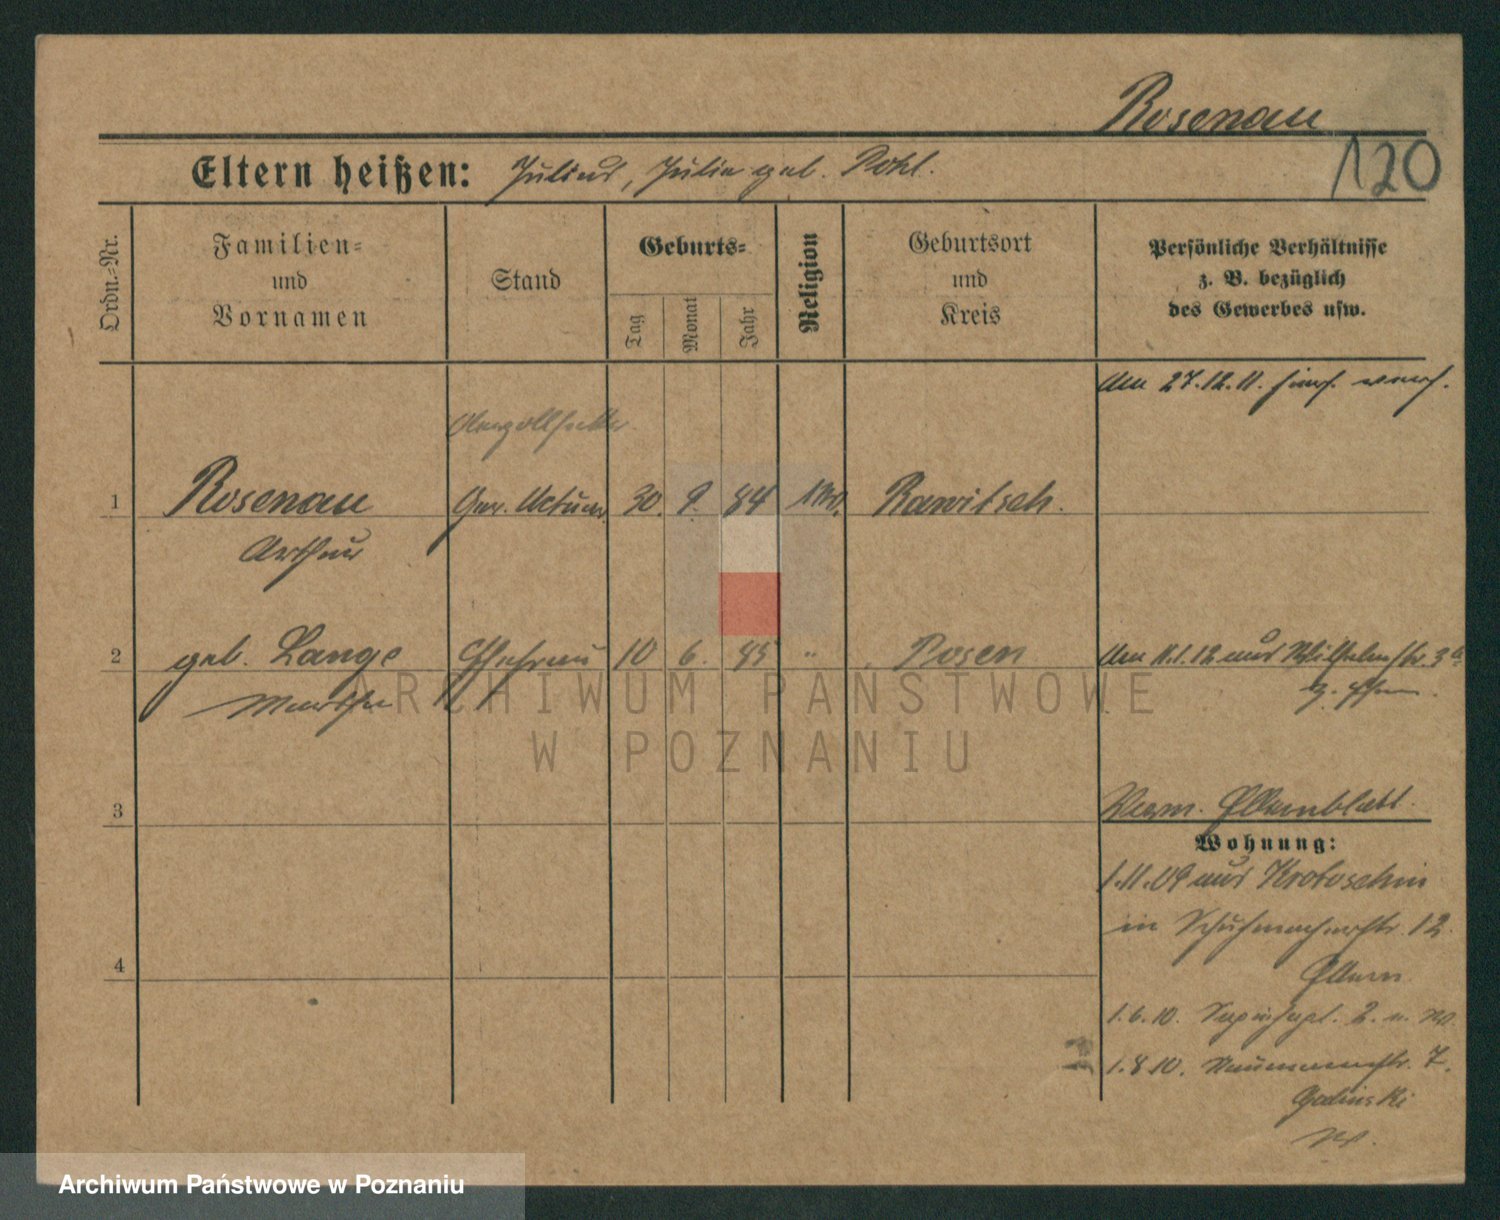 Rosenau
120
Eltern heißen: Julius, Julia geb. Pohl.
Ordn.=Nr.
Familien=
und
Vornamen
Stand
Geburts=
Tag
Monat
Jahr
Religion
Geburtsort
und
Kreis
Persönliche Verhältnisse
z. B. bezüglich
des Gewerbes usw.
Am 27.12.11.
1
Rosenau
Arthur
Ger. Actuar
30. 9. 84
Rawitsch.
2
geb. Lange
Martha
Ehefrau
10 6. 85 "
Posen
Am 11.1.12 aus Wilhelmstr. 3a
3
Verm. Elternblatt.
Wohnung:
1.11.09 aus Krotoschin
in Schuhmacherstr. 12.
Eltern
4
1.6.10. Sapiehapl. 2.
1.8.10. Naumannstr. 7.
ARCHIWUM PAŃSTWOWE
W POZNANIU
Archiwum Państwowe w Poznaniu